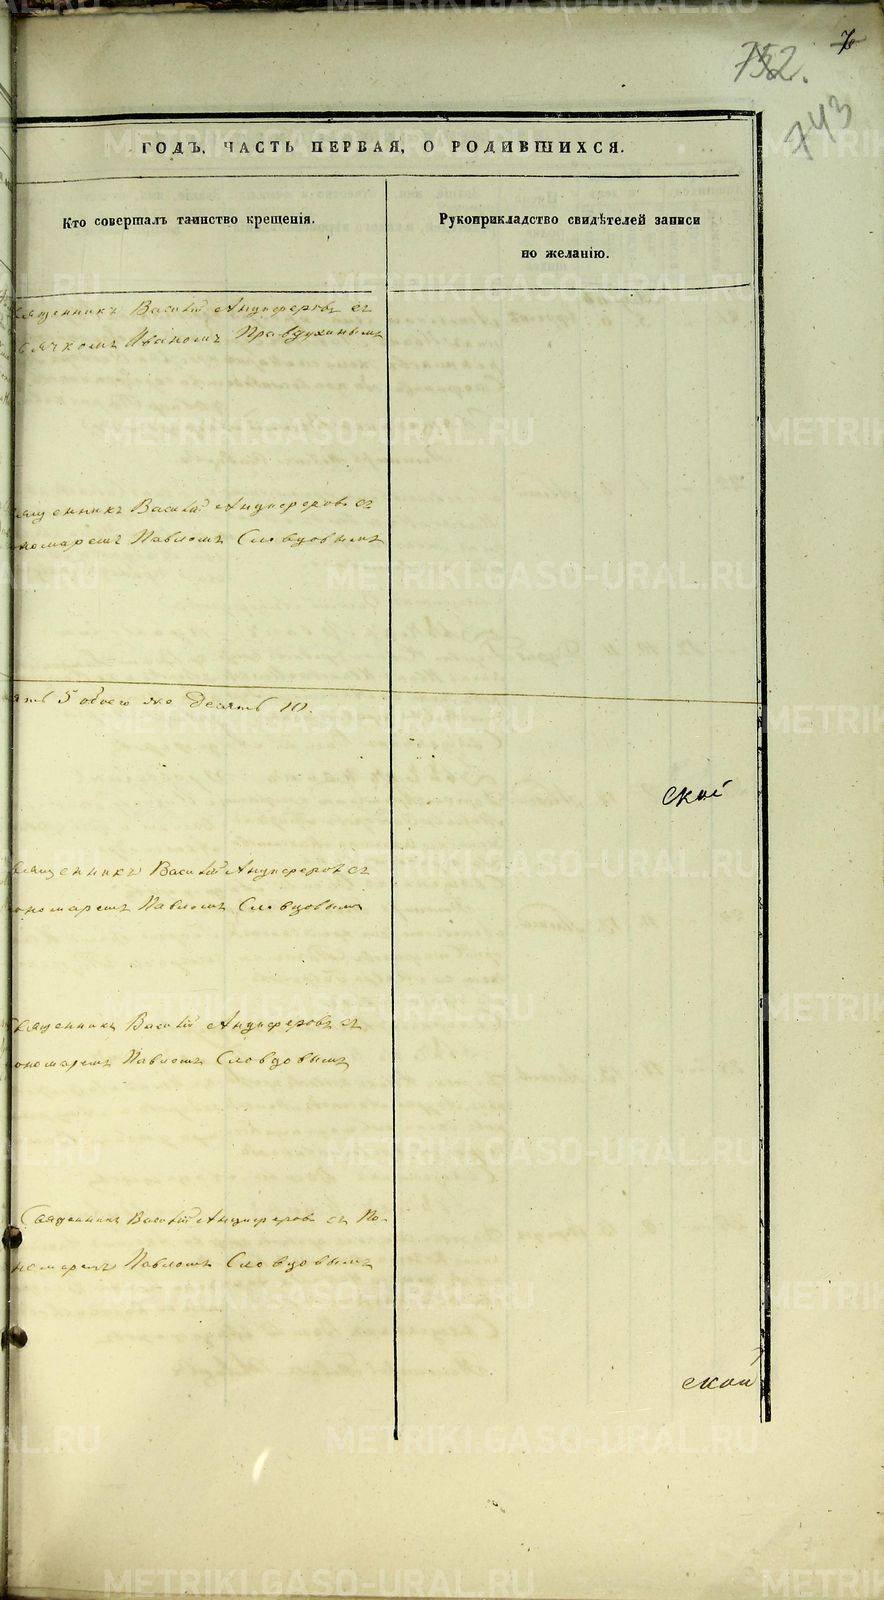 7
752.
743
ГОДЪ, ЧАСТЬ ПЕРВАЯ, О РОДИВШИХСЯ.
Кто совершалъ таинство крещенія.
Рукоприкладство свидѣтелей записи
по желанію.
священникъ Василій Анциферовъ съ
дьячкомъ Иваномъ Правдухинымъ
священникъ Василій Анциферовъ съ
пономаремъ Павломъ Словцовымъ
ять 5 обоего же десять 10.
ской
священникъ Василій Анциферовъ съ
пономаремъ Павломъ Словцовымъ
Священникъ Василій Анциферовъ съ
пономаремъ Павломъ Словцовымъ
Священникъ Василій Анциферовъ съ По-
номаремъ Павломъ Словцовымъ
ской
METRIKI.GASO-URAL.RU